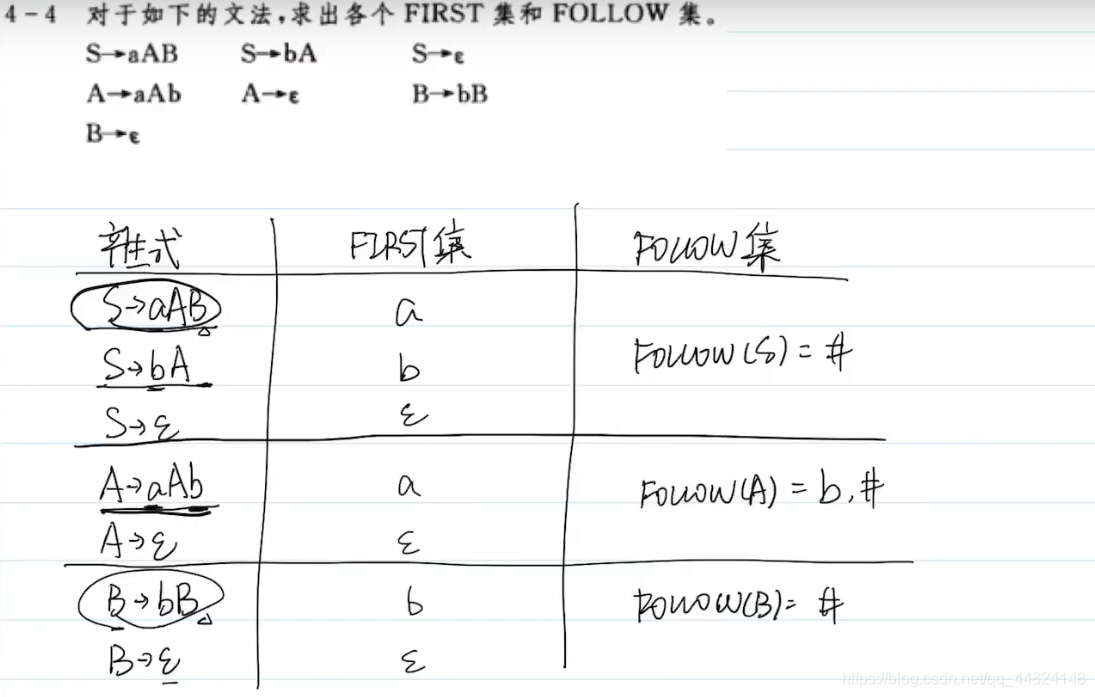 4-4 对于如下的文法,求出各个 FIRST 集和 FOLLOW 集。
S→aAB S→bA S→ε
A→aAb A→ε B→bB
B→ε
产生式 FIRST集 FOLLOW集
S→aAB a
S→bA b FOLLOW(S) = #
S→ε ε
A→aAb a FOLLOW(A) = b,#
A→ε ε
B→bB b FOLLOW(B)= #
B→ε ε
https://blog.csdn.net/qq_44824148